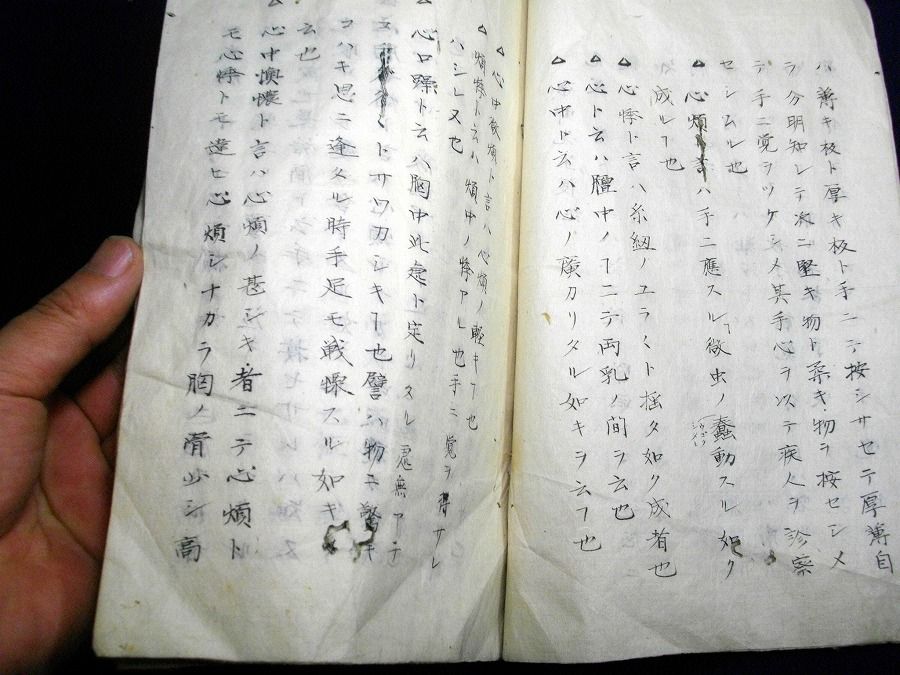 ハ薄キ板ト厚キ板ト手ニテ按シサセテ厚薄自
ラ分明知レテ次ニ堅キ物ト柔キ物ヲ按セシメ
テ手ニ覚ヲツケシメ其手心ヲ以テ疾人ヲ診察
セシムル也
△心煩ト言ハ手ニ應スルヿ微虫ノ蠢動スル如ク
成ルヿ也
△心悸ト言ハ糸紐ノユラ〱ト揺タ如ク成者也
△心下云ハ膻中ノヿニテ両乳ノ間ヲ云也
△心中ト云ハ心ノ廣カリタル如キヲ云フ也
△心中煩ト言ハ心煩ノ軽キヿ也
△煩悸ト云ハ煩中ノ悸アル也手ニ覚ヲ得サレ
ハシレヌ也
△心口躁ト云ハ胸中此処ト定リタル処無アチ
〱トサワカシキヿ也譬ハ物ニ驚キ
コハキ思ニ逢タル時手足モ戦慄スル如キ
云也
△心中懊憹ト言ハ心煩ノ甚シキ者ニテ心煩ト
モ心悸トモ違ヒ心煩シナカラ胸ノ滑少シ高